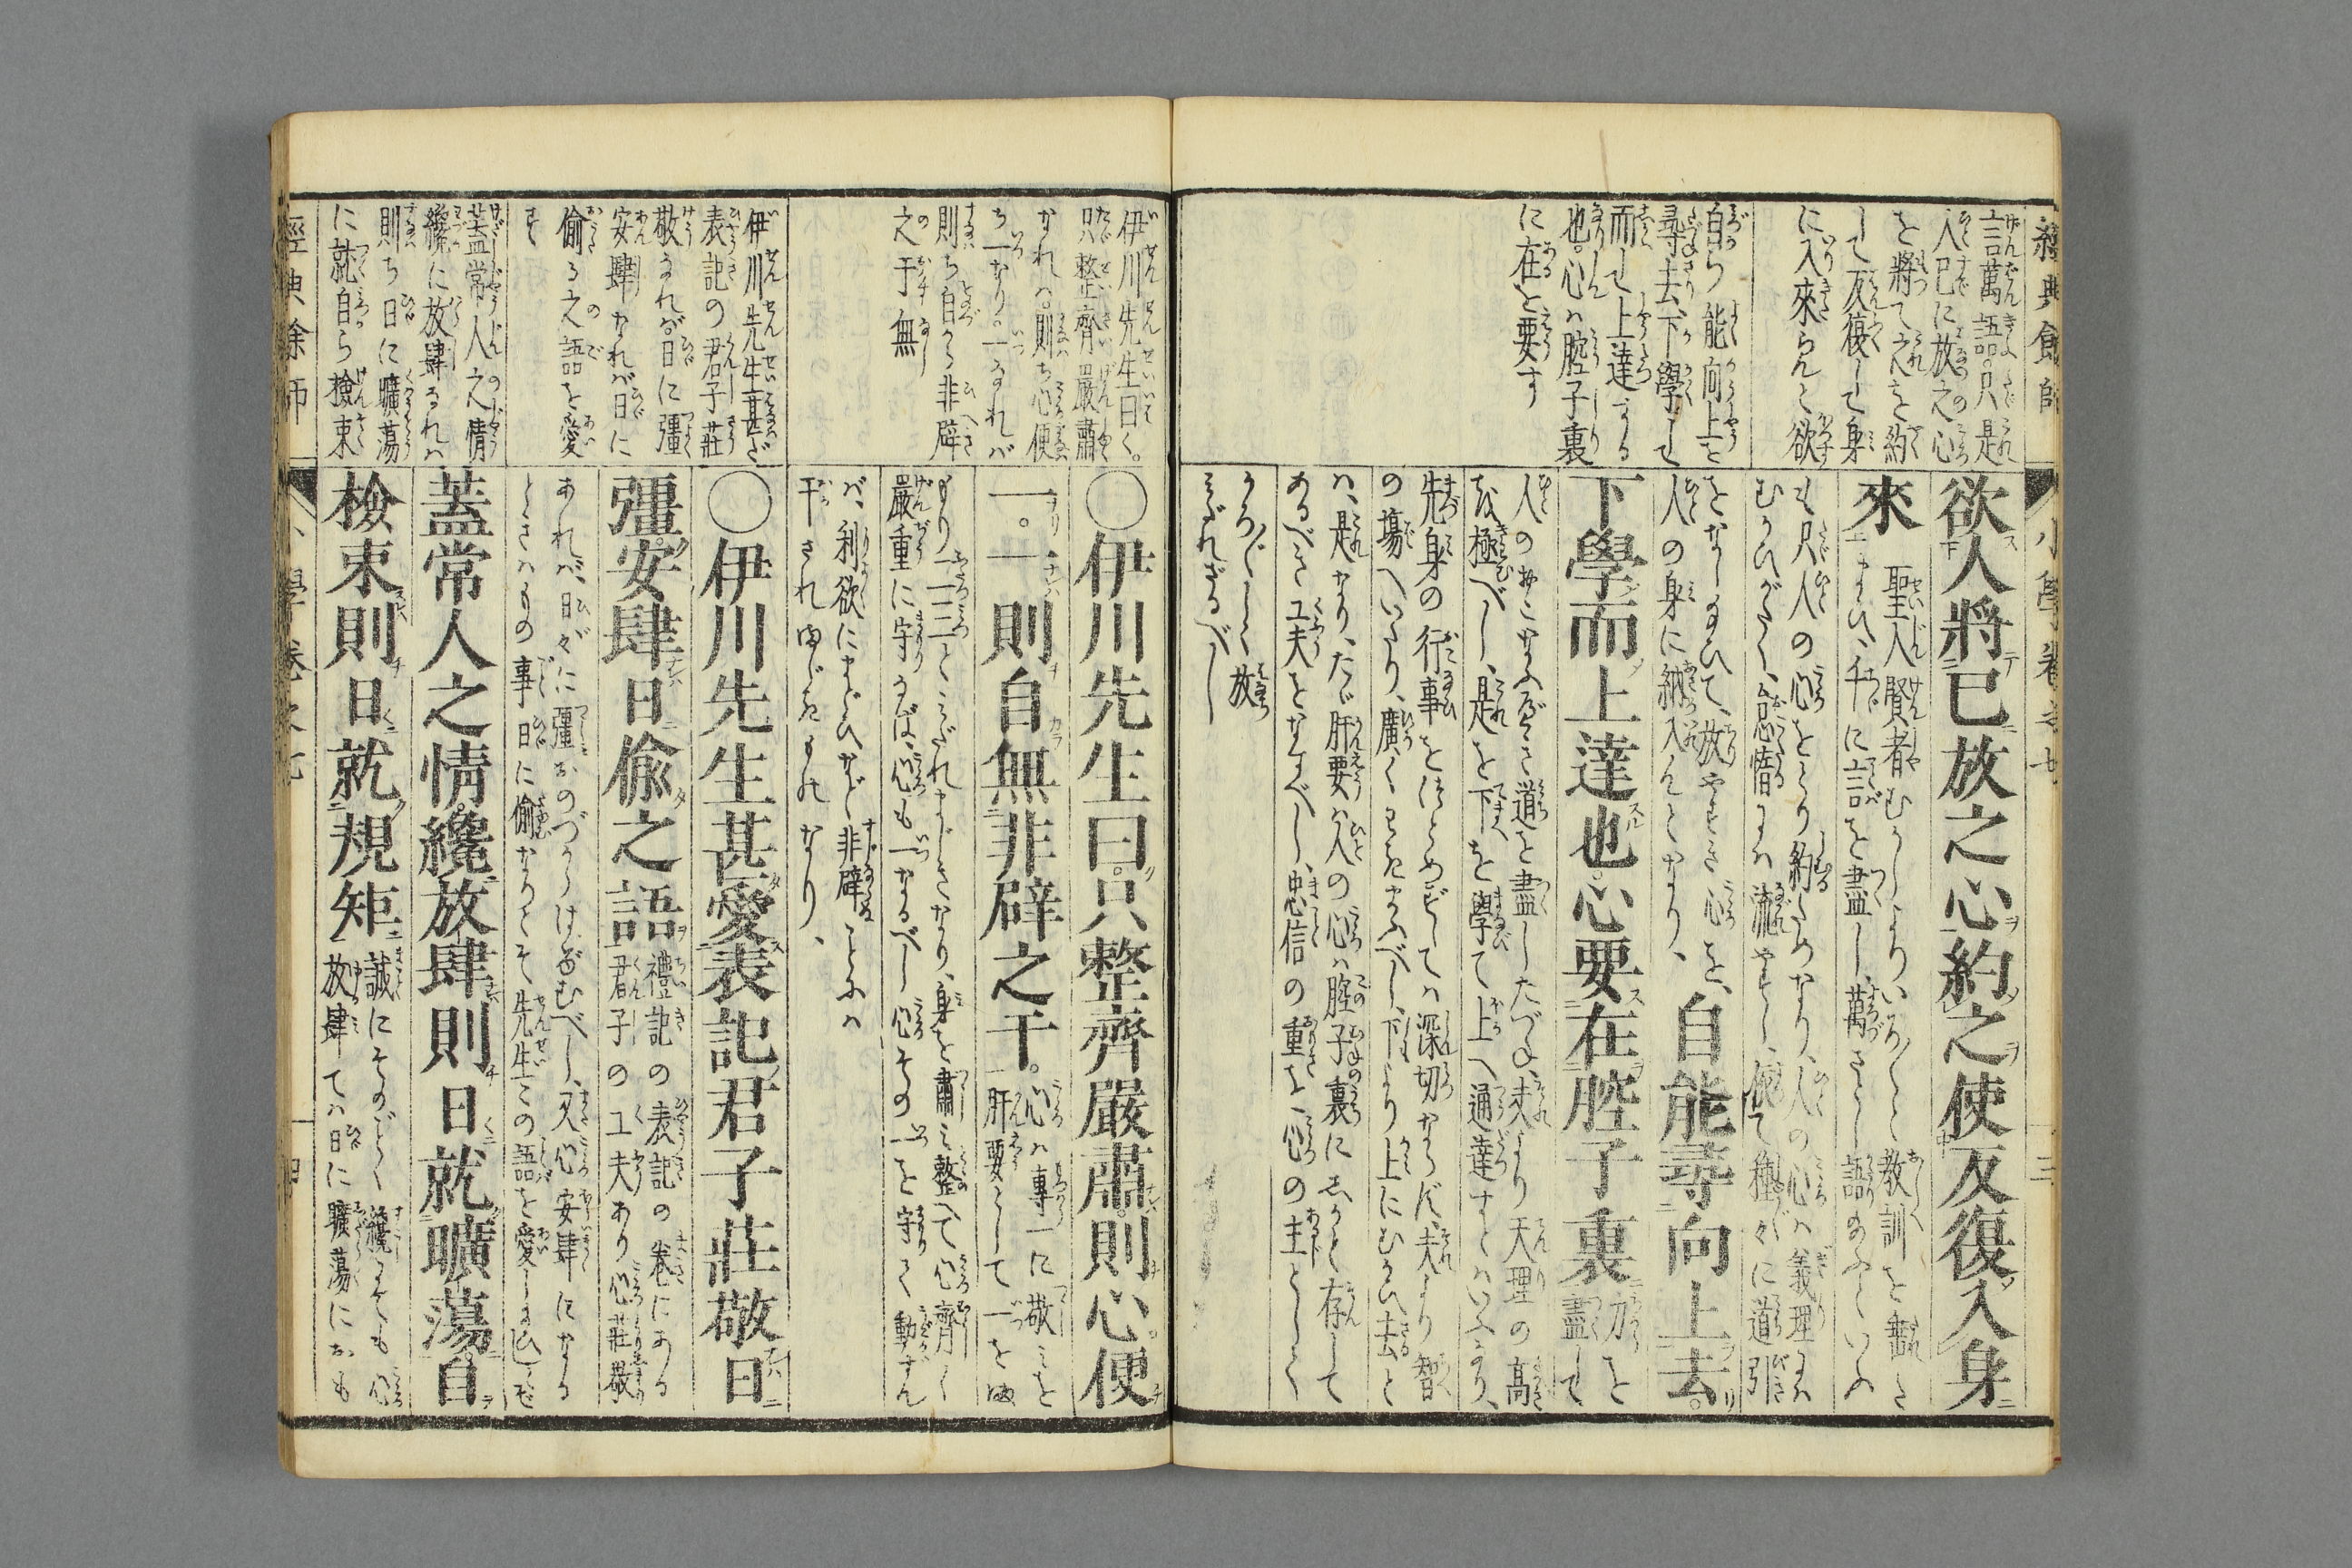 經典餘師
小學卷之七
三
言萬語只是
人已に放之心
を將て之を約
して反復して身
に入來らんと欲
自ら能向上を
尋去下學して
而して上達する
也心は腔子裏
に在と要す
欲人將已放之心約之使反復入身
來
聖人賢者むかしよりいろ〳〵と教訓を垂れさ
まひ、千に言を盡し、萬さとし語のふといふ
も只人の心をとり約しめなり、人の心は義理には
むかひがたく、怠惰には流やすし、
をなしなひて、放やすき心を、
人の身に納入んとなり、
自能尋向上去
下學而上達也心要在腔子裏
力を
盡して
人のおこなふべき道を盡したづね、夫より天理の高
を極べし、是を下を學て上へ通達すとはいふなり、
先身の行事をつとめずしては深切ならず、夫より智
の場へいたり、廣くせきまふべし、下より上にむかひ去と
は、是なり、たゞ肝要は人の心は腔子裏に志かと存して
あるべき工夫をなすべし、忠信の重を心の主としてく
かろ〴〵しく放
みだれざるべし
伊川先生曰く
只整齊嚴肅
なれは則ち心便
ち一なり一なれば
則ち自から非辟
之干無し
伊川先生甚だ
表記の君子莊
敬なれば日に彊
安肆なれば日に
偷る之語を愛
す
蓋常人之情
纔に放肆なれは
則ち日に曠蕩
に就自ら檢束
〇伊川先生曰只整齊嚴肅則心便
一一則自無非辟之干
心は專一に敬を
肝要として一を守
なり二三とみだれまじきなり、身を肅み整へて心齊く
嚴重に守るならば、心も一なるべし心その一を守りく動ずん
ば、利欲にまどひなど非辟ことには
干されまじきものなり、
〇伊川先生甚愛表記君子莊敬日
彊安肆日偷之語
禮記の表記の卷にある
君子の工夫あり心莊敬
あれば、日々に彊おのづからはげむべし、又心安肆になる
ときはもの事日に偷なるとぞ先生この語を愛しまひしとぞ
蓋常人之情纔放肆則日就曠蕩自
檢束則日就規矩
誠にそのごとく纔にても心
放肆ては日に曠蕩におも
經典餘師
小學卷之七
四